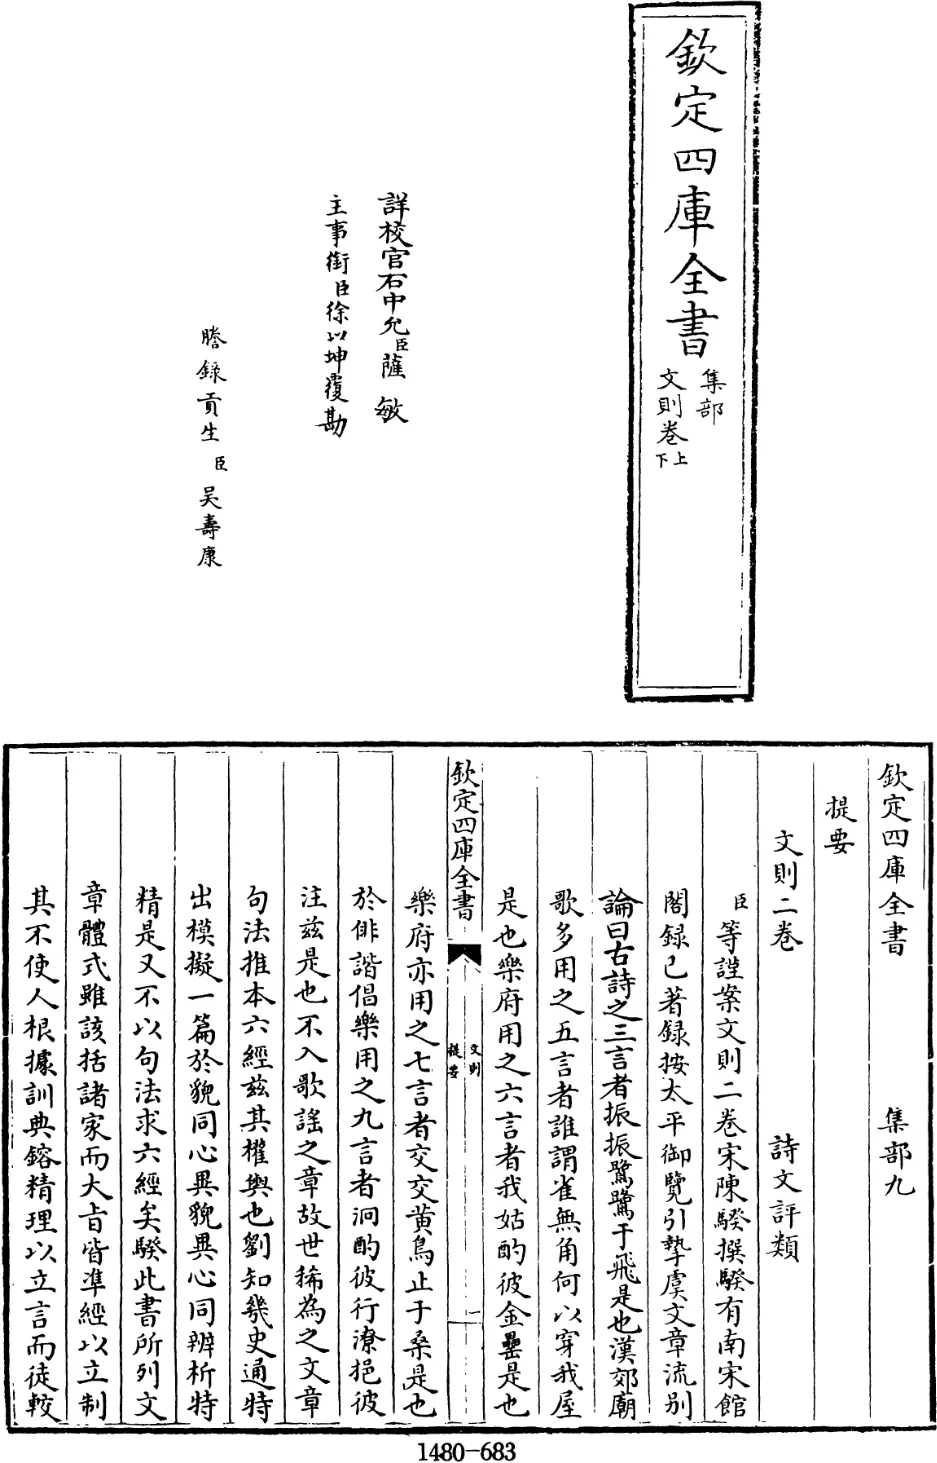 欽定四庫全書
集部
文則卷上下
詳校官右中允臣薩敏
主事銜臣徐以坤覆勘
謄録貢生臣吴壽康
欽定四庫全書 集部九
提要
文則二卷 詩文評類
臣等謹案文則二卷宋陳騤撰騤有南宋館
閣録已著録按太平御覽引摯虞文章流别
論曰古詩之三言者振振鷺鷺于飛是也漢郊廟
歌多用之五言者誰謂雀無角何以穿我屋
是也樂府用之六言者我姑酌彼金罍是也
欽定四庫全書
文則
提要
一
樂府亦用之七言者交交黄鳥止于桑是也
於俳諧倡樂用之九言者泂酌彼行潦挹彼
注兹是也不入歌謡之章故世稀為之文章
句法推本六經兹其權輿也劉知幾史通特
出模擬一篇於貌同心異貌異心同辨析特
精是又不以句法求六經矣騤此書所列文
章體式雖該括諸家而大旨皆準經以立制
其不使人根據訓典鎔精理以立言而徒較
1480-683